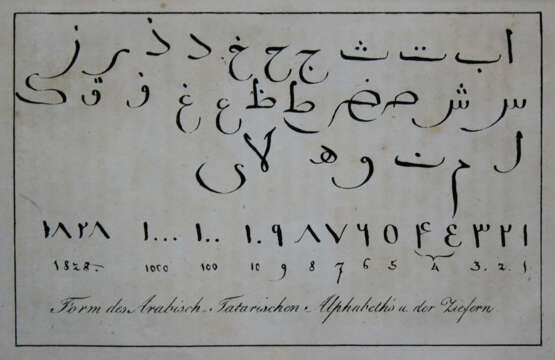 ا ب ت ث ج ح خ د ذ ر ز
س ش ص ض ط ظ ع غ ف ق ک
ل م ن و ه لا ی
١ ٢ ٣ ٤ ۴ ٥ ٦ ٧ ٨ ٩ ١٠ ١٠٠ ١٠٠٠ ١٨٢٨
1. 2. 3. 4 5 6 7 8 9 10 100 1000 1828.
Form des Arabisch-Tatarischen Alphabeth's u. der Ziefern